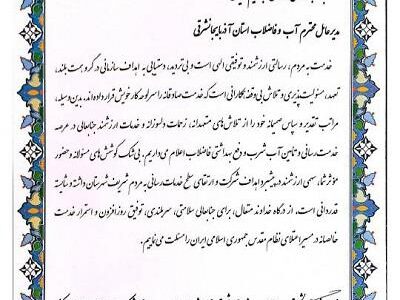 مدیرعامل محترم آب و فاضلاب استان آذربایجانشرقی
خدمت به مردم، رسالتی ارزشمند و توفیقی الهی است و بی‌تردید، دستیابی به اهداف سازمانی در گرو همت بلند،
تعهد، مسئولیت‌پذیری و تلاش بی‌وقفه همکارانی است که خدمت صادقانه را سرلوحه کار خویش قرار داده‌اند. بدین وسیله،
مراتب تقدیر و سپاس صمیمانه خود را از تلاش‌های متعهدانه، زحمات دلسوزانه و خدمات ارزشمند جنابعالی در عرصه
خدمت‌رسانی و تأمین آب شرب و دفع بهداشتی فاضلاب اعلام می‌داریم. بی‌شک کوشش‌های مسئولانه و حضور
مؤثر شما، سهمی ارزشمند در پیشبرد اهداف شرکت و ارتقای سطح خدمات‌رسانی به مردم شریف شهرستان داشته و شایسته
قدردانی است. از درگاه خداوند متعال، برای جنابعالی سلامتی، سربلندی، توفیق روزافزون و استمرار خدمت
خالصانه در مسیر اعتلای نظام مقدس جمهوری اسلامی ایران را مسئلت می‌نماییم.